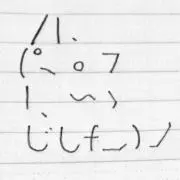 ／l、
(ﾟ、 。 7
l ~ ヽ
じしf_)ノ